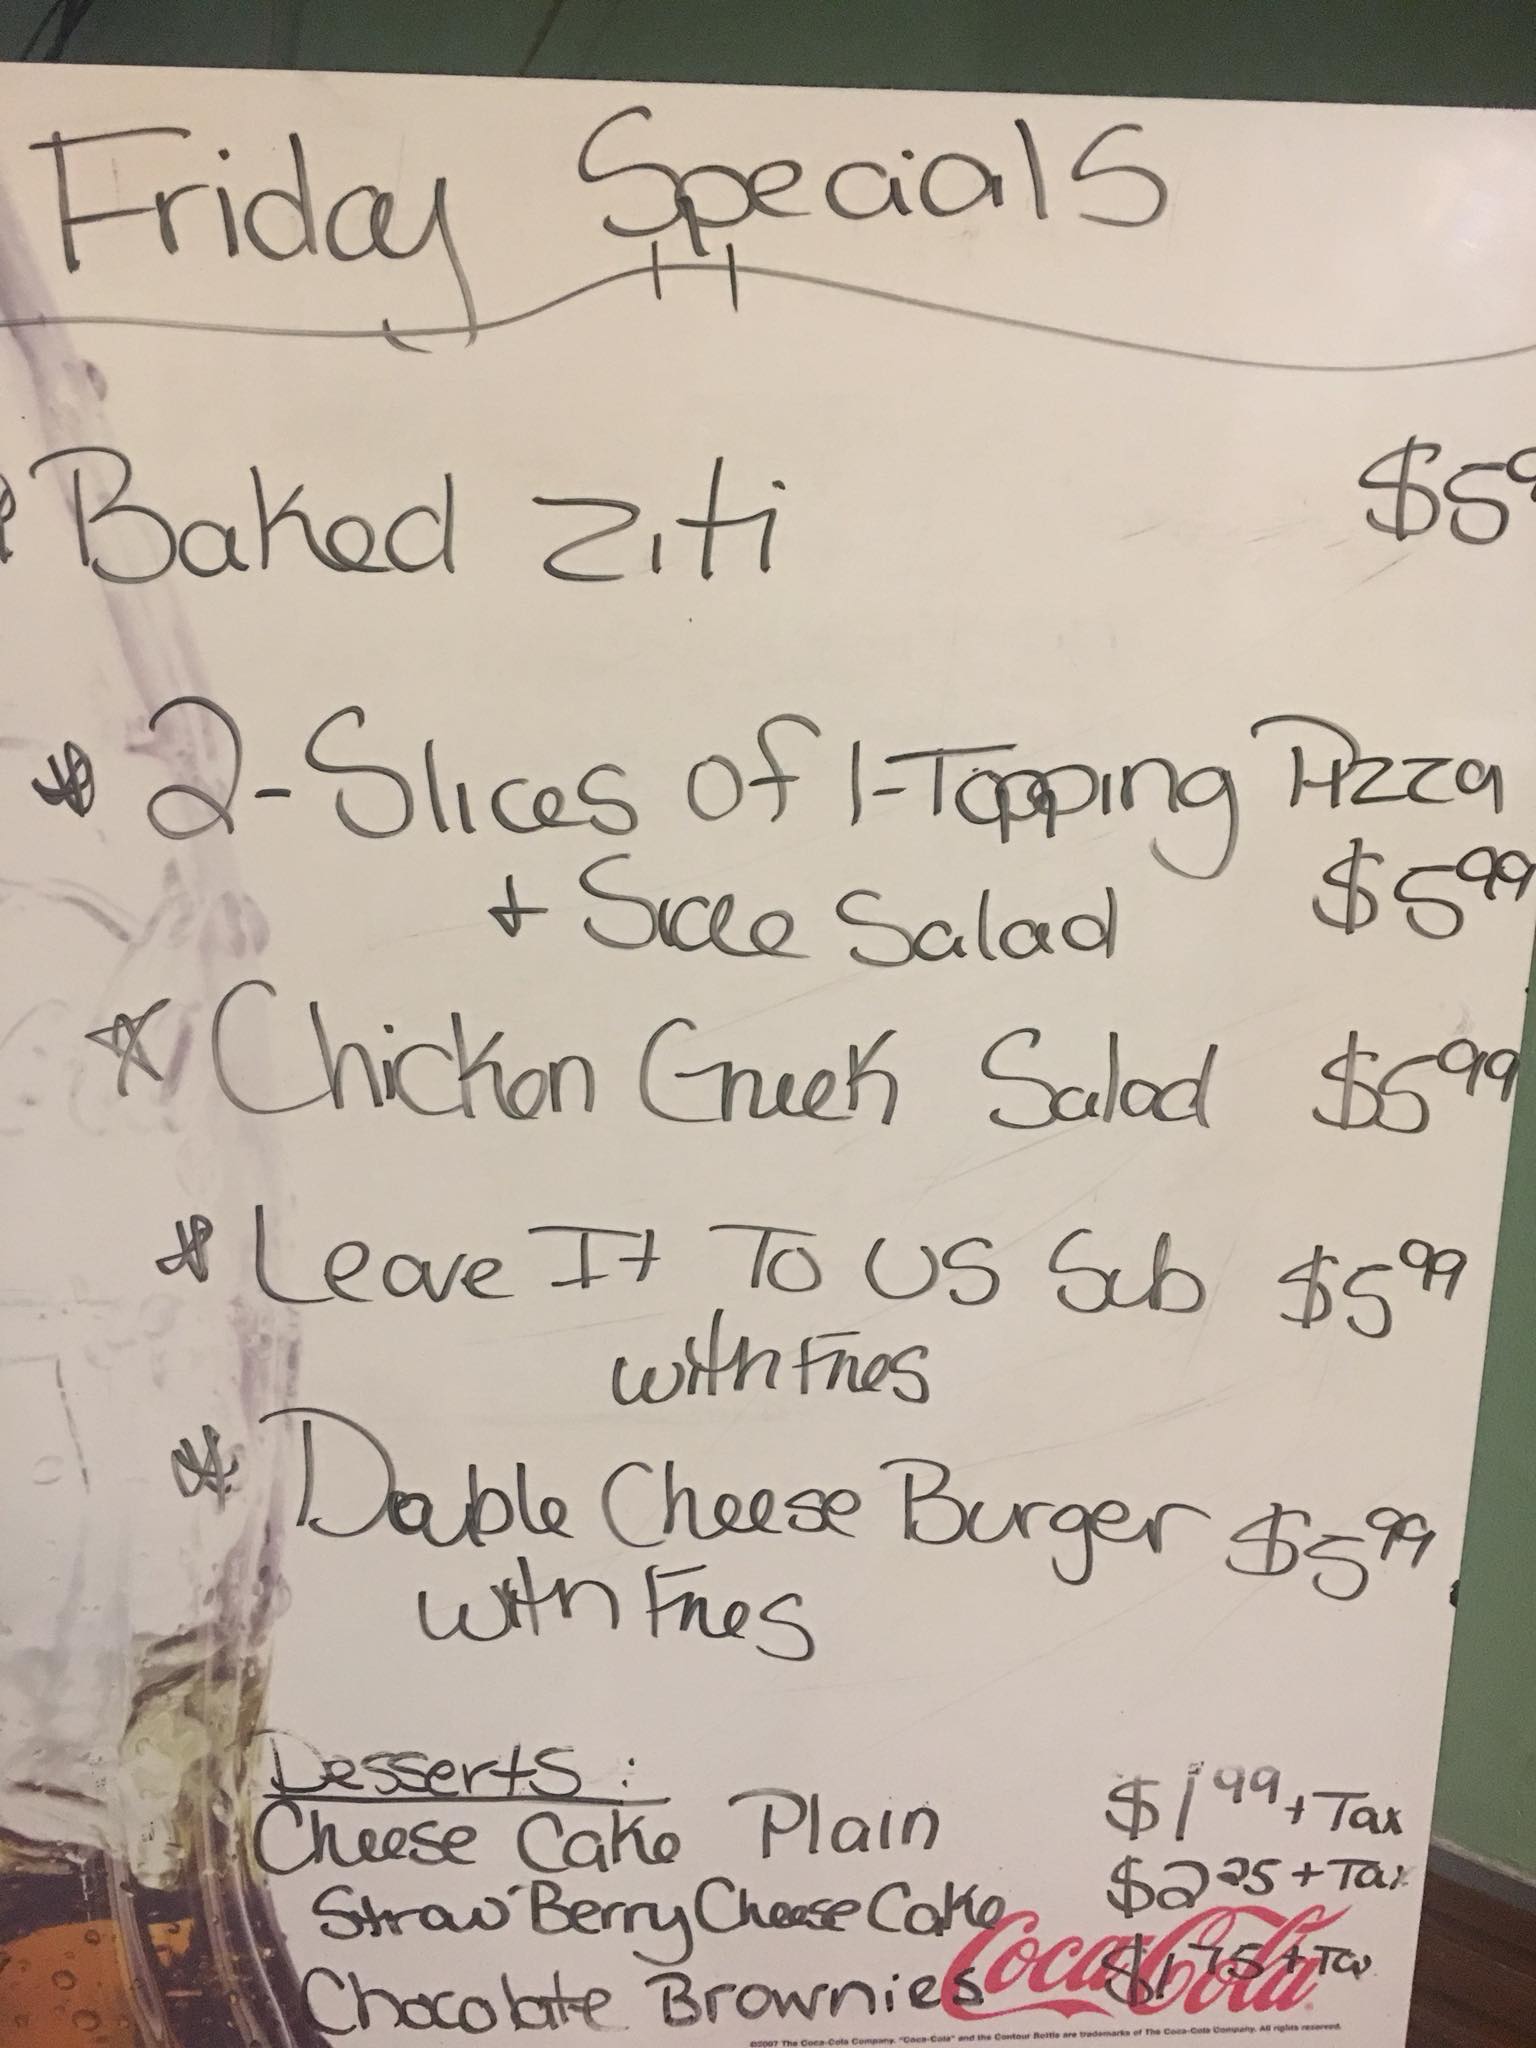 Friday Specials
Baked Ziti $5
2-Slices of 1-Topping Pizza
+ Side Salad $5.99
Chicken Greek Salad $5.99
Leave It To US Sub $5.99
with Fries
Double Cheese Burger $5.99
with Fries
Desserts:
Cheese Cake Plain $1.99 + Tax
StrawBerry Cheese Cake $2.25 + Tax
Chocolate Brownies $1.75 + Tax
Coca-Cola
©2007 The Coca-Cola Company. "Coca-Cola" and the Contour Bottle are trademarks of The Coca-Cola Company. All rights reserved.